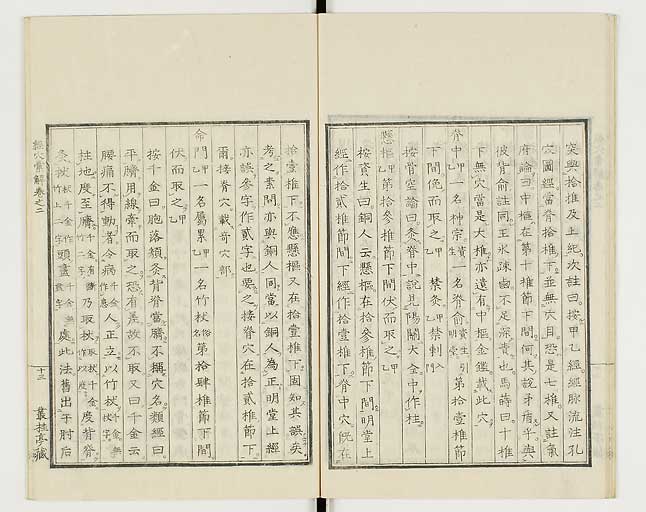 突與拾椎及上紀次註曰按甲乙經經脈流注孔
穴圖經當脊拾椎下並無穴目恐是七椎又註氣
府論曰中樞在第十椎節下間何其說矛盾乎與
彼背俞註同王氷疎鹵不足深責也馬蒔曰十椎
下無穴當是大椎亦遠有中樞金鑑載此穴
脊中甲乙一名神宗資生一名脊俞資生明堂第拾壹椎節
下間俛而取之甲乙禁灸甲乙禁刺入門
按骨空論曰灸脊中說見陽關大全中作柱
懸樞甲乙第拾參椎節下間伏而取之甲乙
按資生曰銅人云懸樞在拾參椎節下間明堂上
經作拾貳椎節間下經作拾壹椎下脊中穴旣在
拾壹椎下不應懸樞又在拾壹椎下固知其誤矣
考之素問亦與銅人同當以銅人為正明堂上經
亦誤參字作貳字也要之接脊穴在拾貳椎節下
爾接脊穴載奇穴部
命門甲乙一名屬累甲乙一名竹杖俗名第拾肆椎節下間
伏而取之甲乙
按千金曰胞落㿗灸背脊當臍不稱穴名類經曰
平臍用線牽而取之恐有差故不取又曰千金云
腰痛不得動者令病千金作患人正立以竹杖千金無杖字
拄地度至臍千金有臍二字乃取杖取杖千金作以度度背脊
灸杖杖千金作竹上二字頭盡千金無盡字處此法舊出于肘后
經穴彙解卷之二
十三
叢桂亭藏